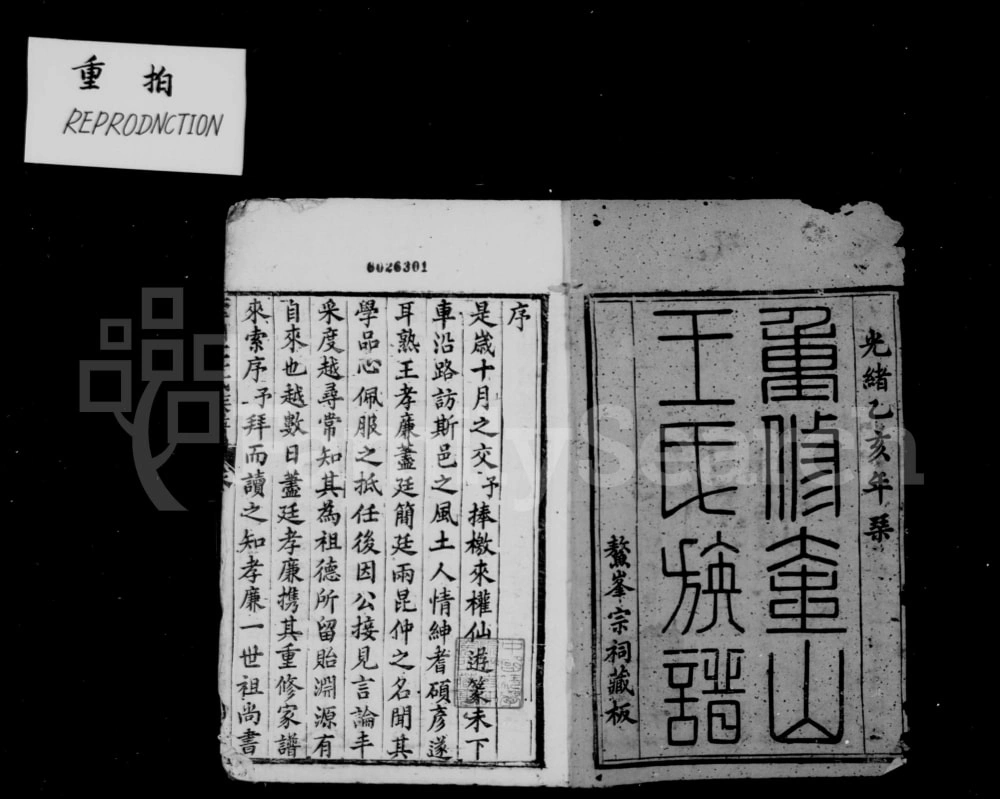 重拍
REPRODNCTION
6026301
光緒乙亥年栞
重修奎山
王氏族譜
鰲峯宗祠藏板
序
是歲十月之交予捧檄來權仙遊篆未下
車沿路訪斯邑之風土人情紳耆碩彥遂
耳熟王孝廉藎廷簡廷兩昆仲之名聞其
學品心佩服之抵任後因公接見言論丰
采度越尋常知其為祖德所留貽淵源有
自來也越數日藎廷孝廉攜其重修家譜
來索序予拜而讀之知孝廉一世祖尚書
FamilySearch